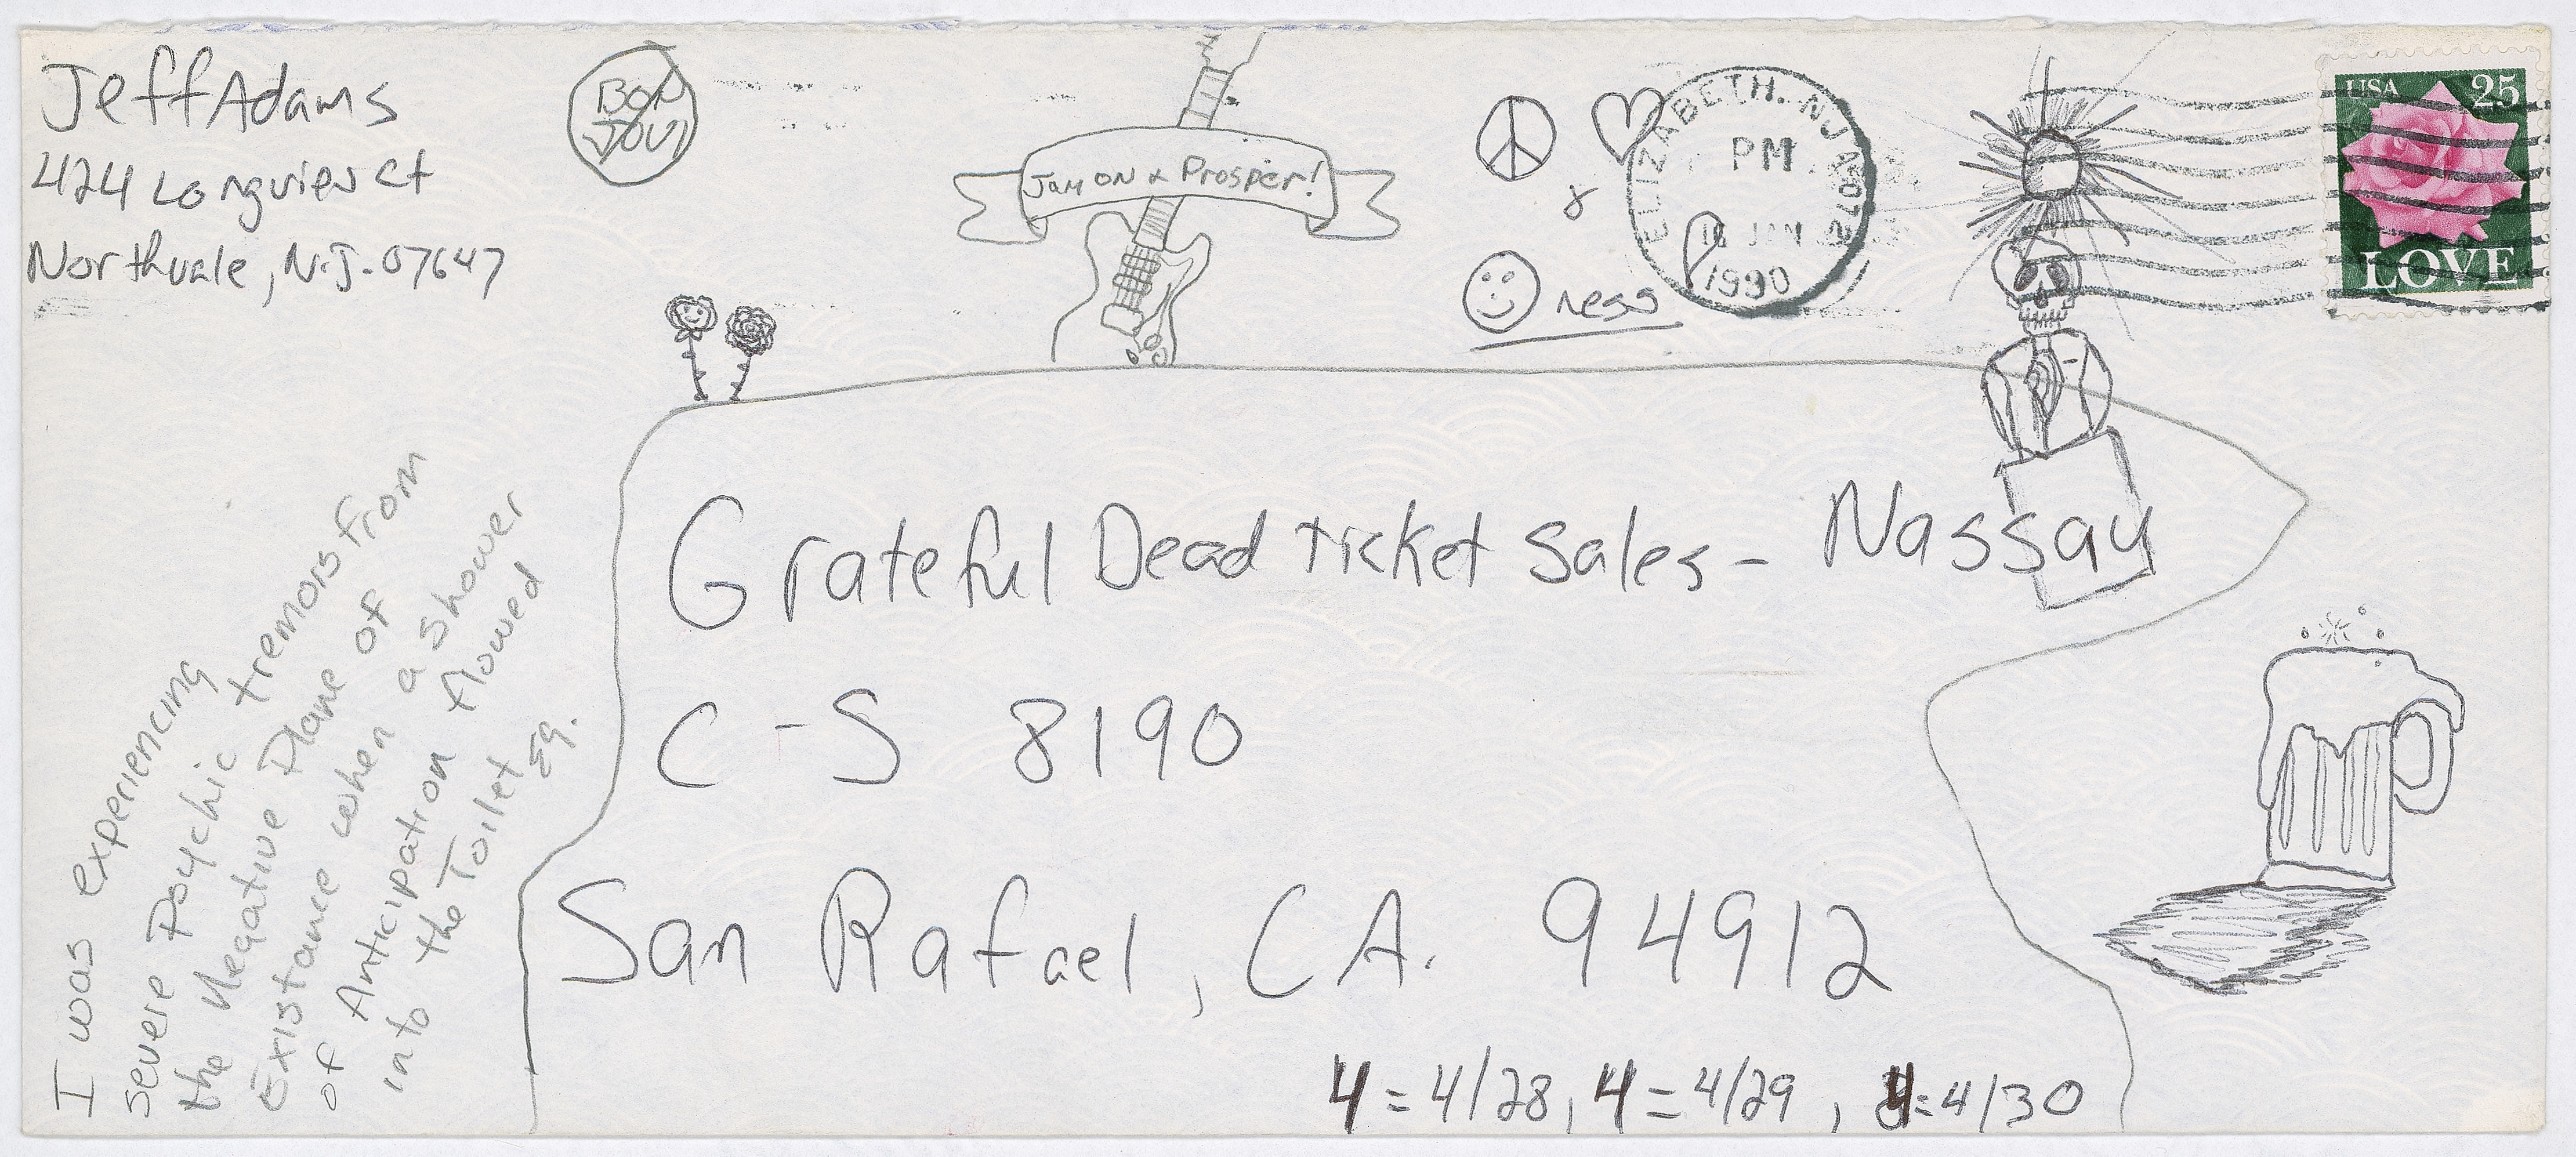 Jeff Adams
424 Longview Ct
Northvale, N.J. 07647
BON
JOVI
Jam ON & Prosper!
&
ness
ELIZABETH, NJ 072
PM
16 JAN
1990
USA 25
LOVE
Grateful Dead Ticket Sales - Nassau
C-S 8190
San Rafael, CA. 94912
4 = 4/28, 4 = 4/29, 4 = 4/30
I was experiencing
severe Psychic tremors from
the Negative Plane of
Existance when a shower
of Anticipation flowed
into the Toilet Eq.